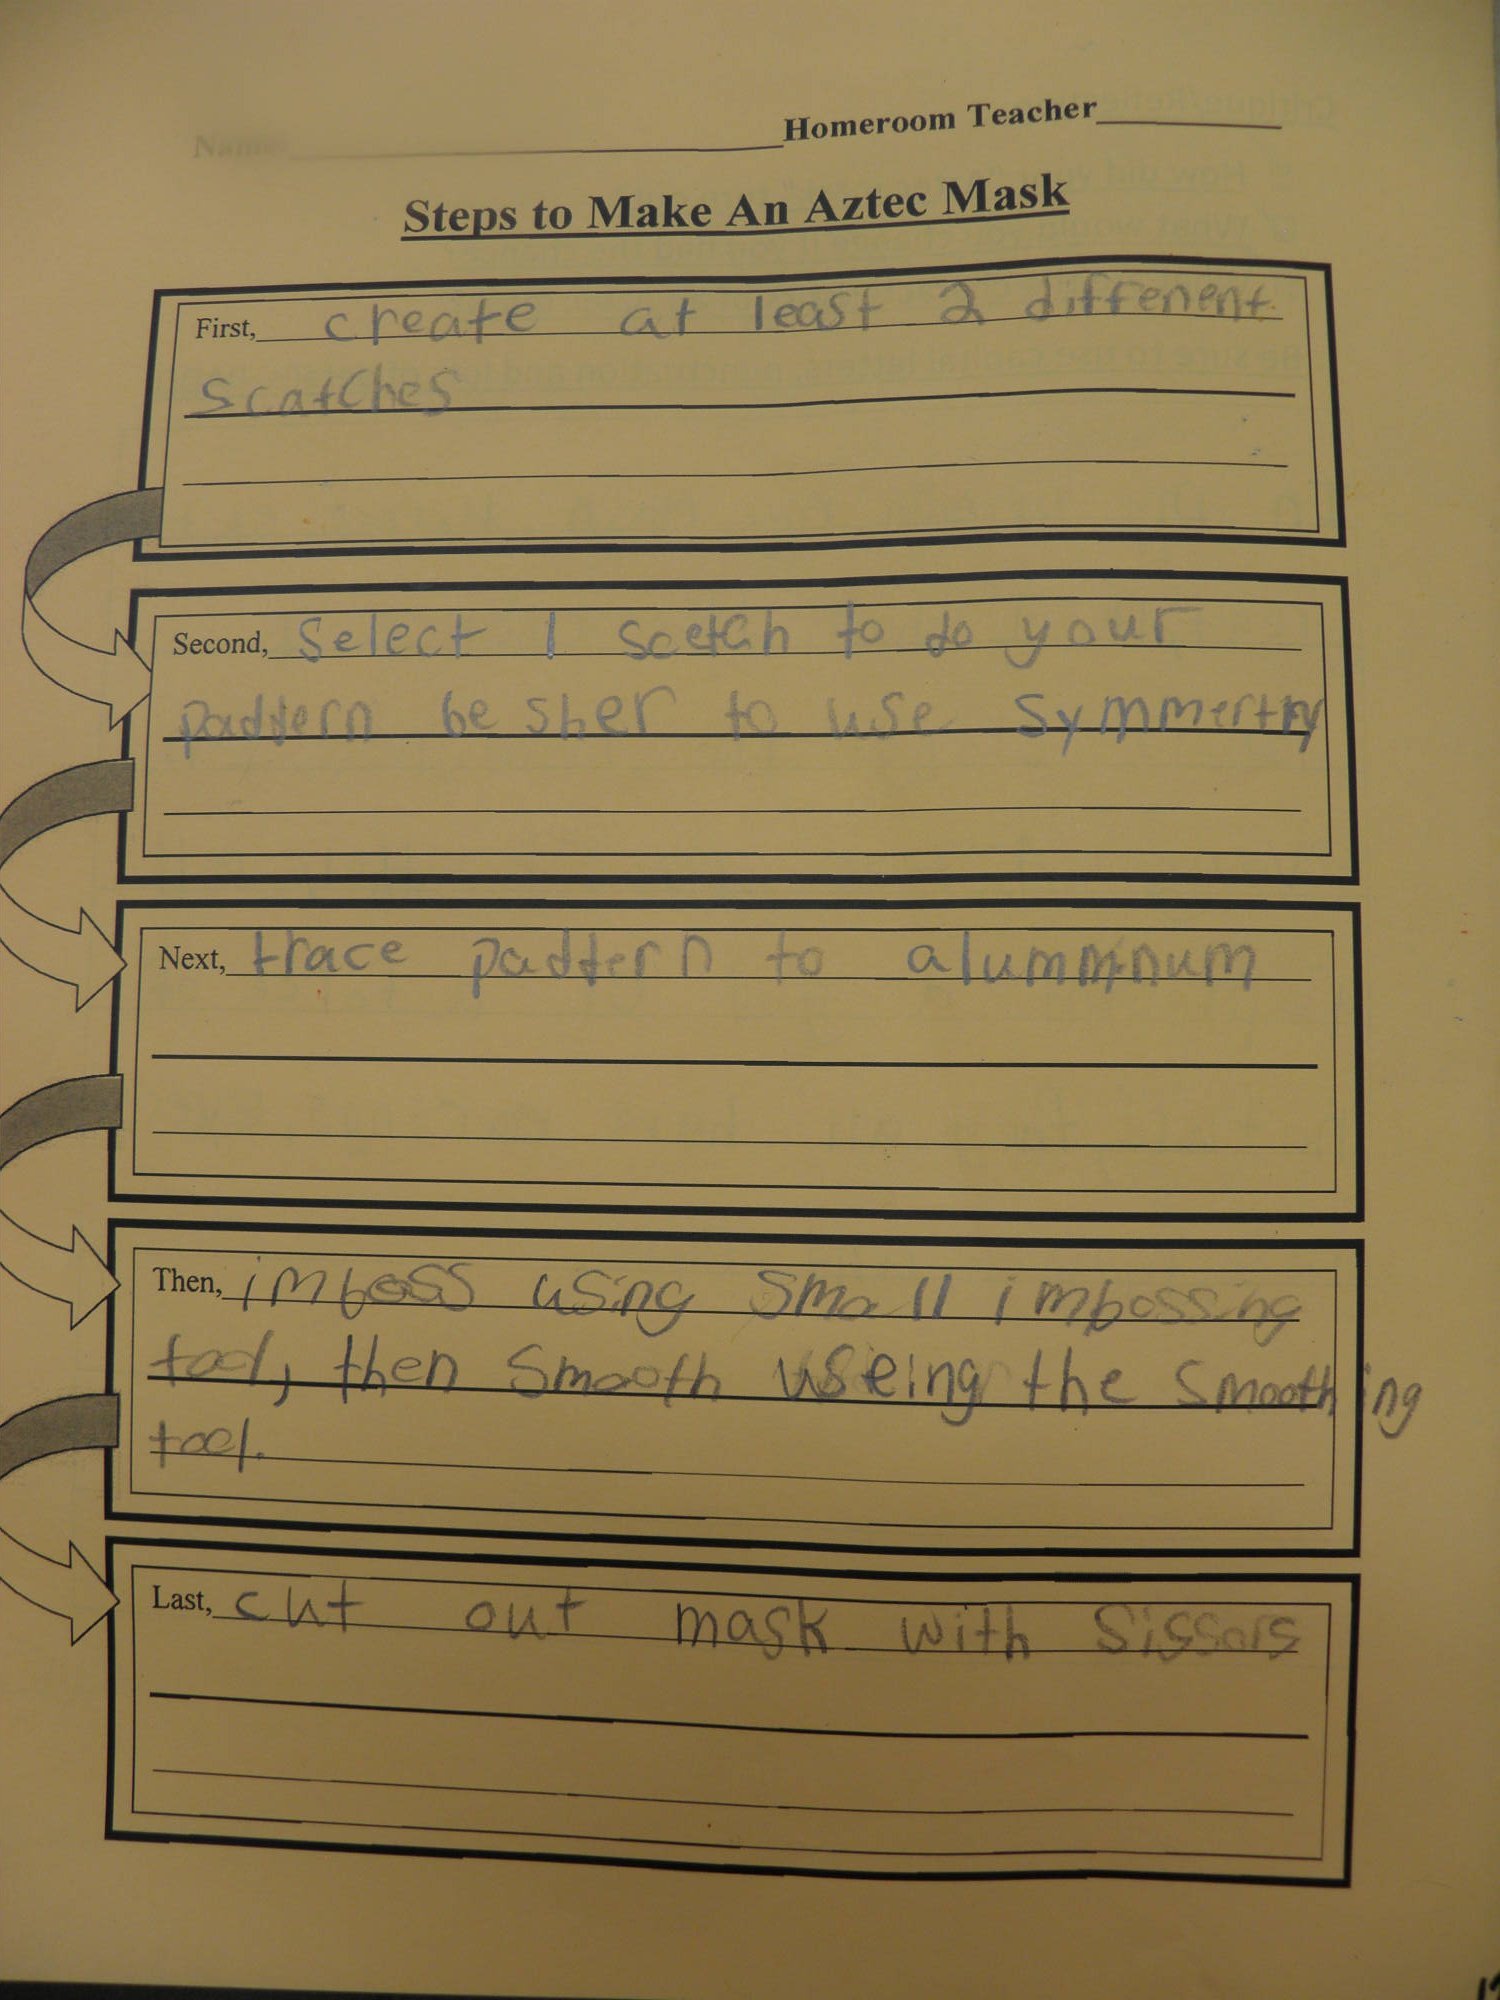 Name Homeroom Teacher
Steps to Make An Aztec Mask
First, create at least 2 diffenent
scatches
Second, Select 1 scetch to do your
paddern be sher to use symmertry
Next, trace paddern to alumminum
Then, imboss using small imbossing
tool, then smooth useing the smoothing
tool.
Last, cut out mask with Sissors